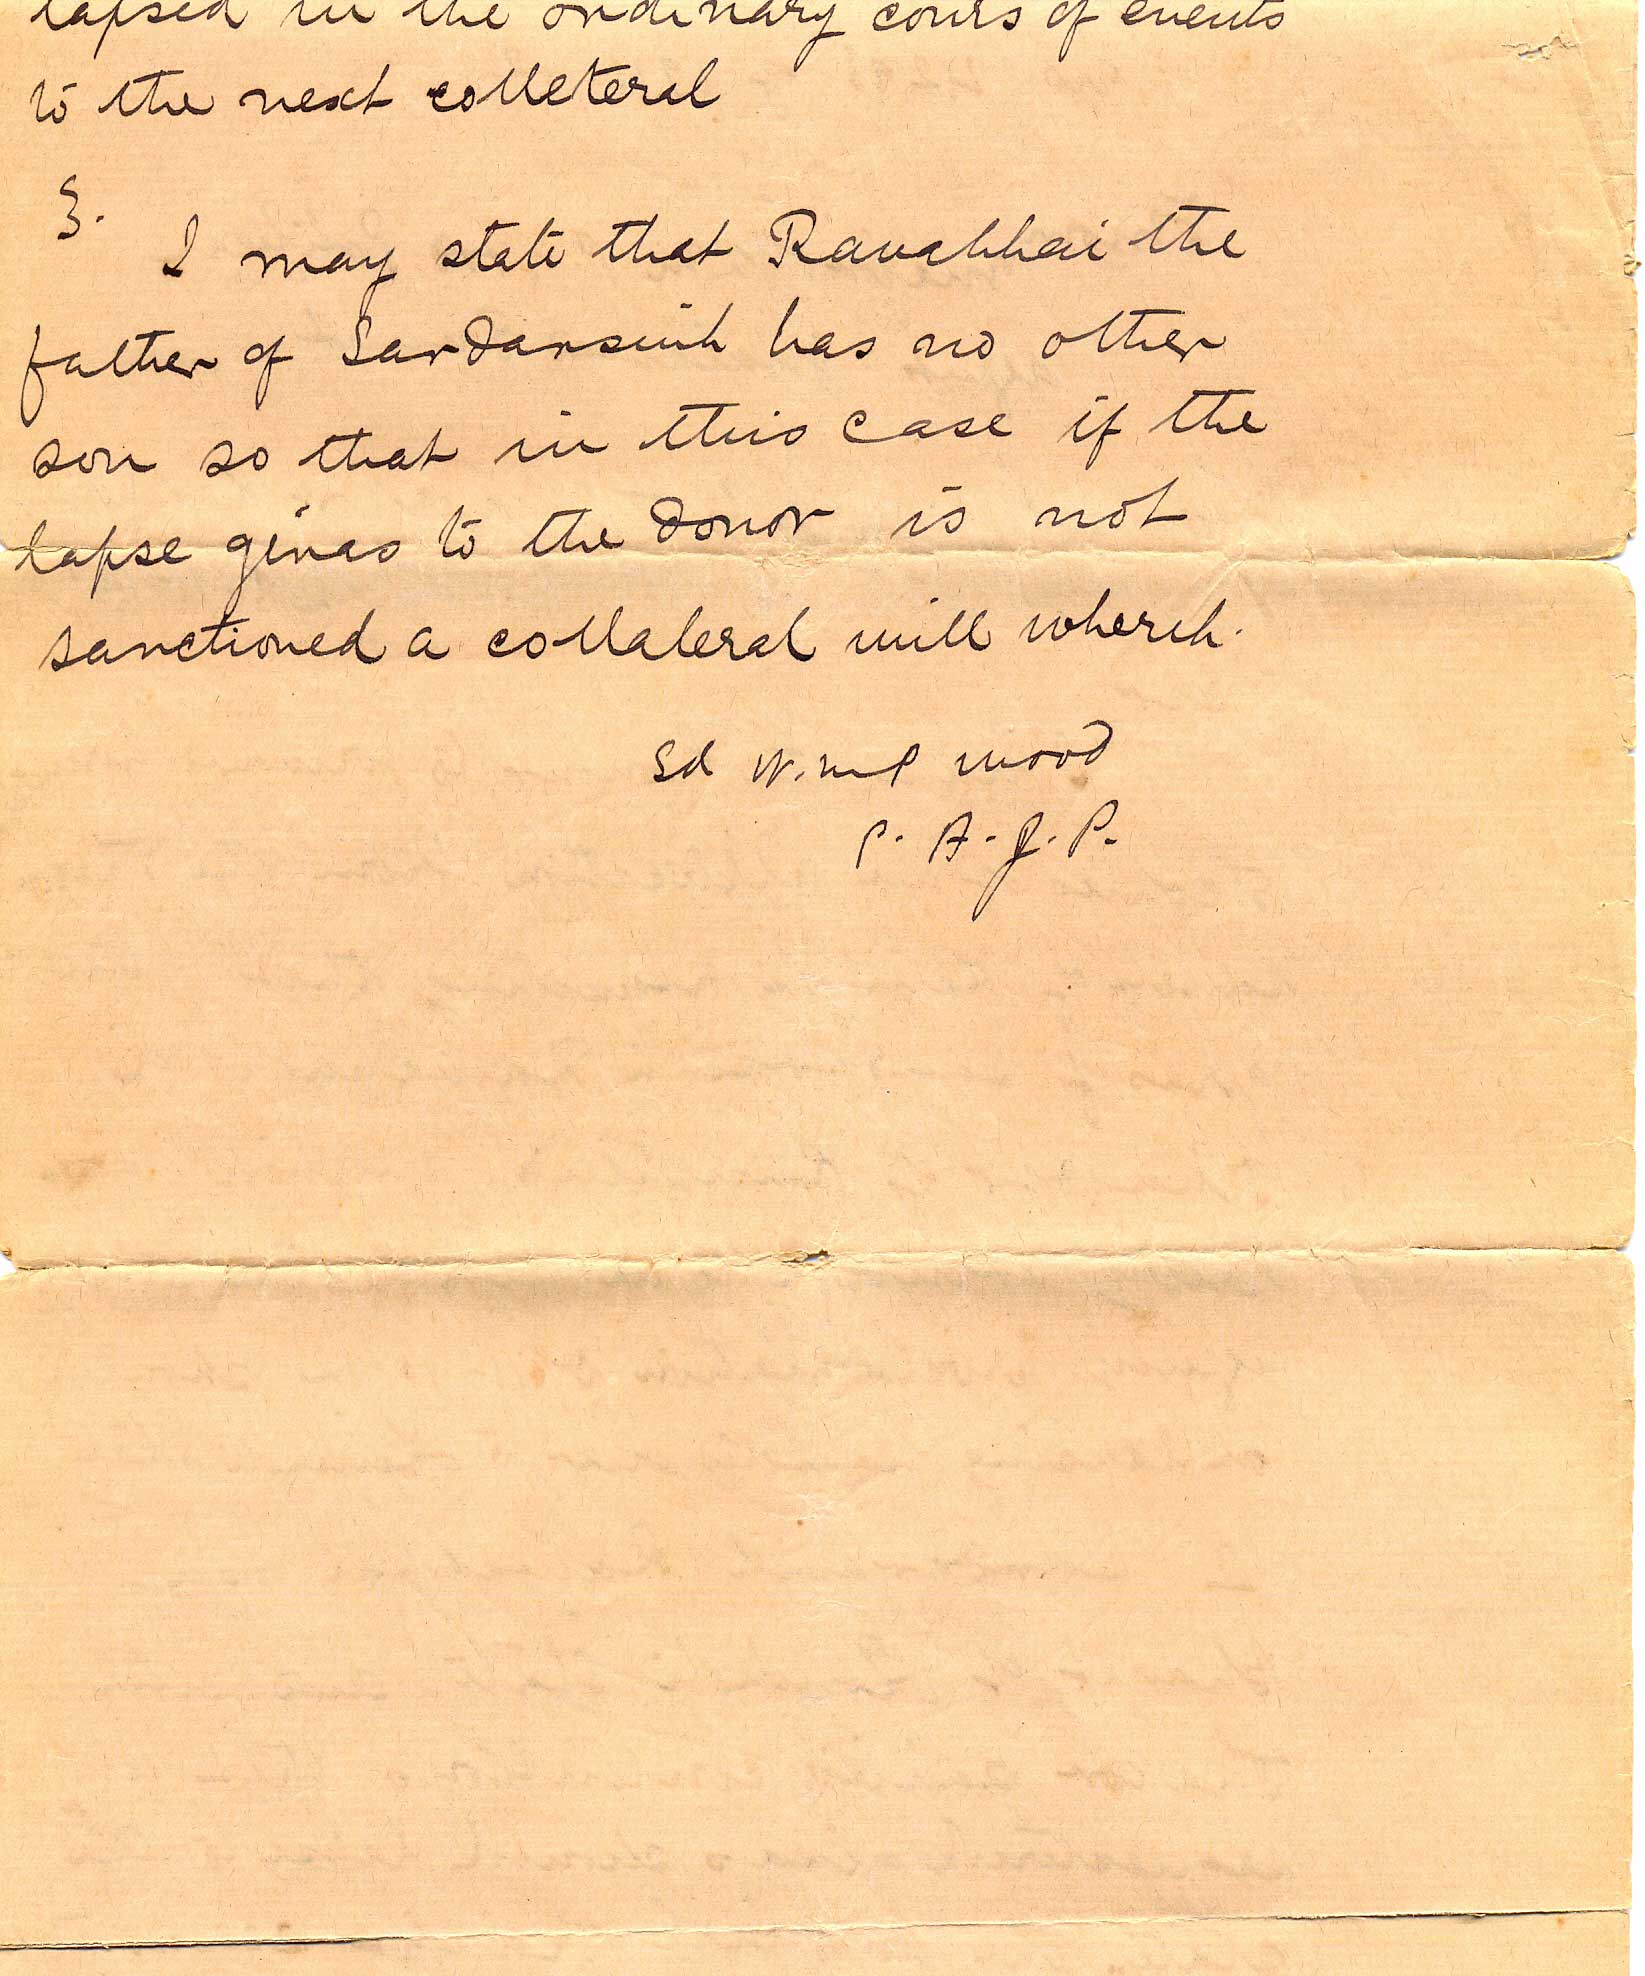 lapsed in the ordinary cours of events
to the next colleteral
3.
I may state that Ravabhai the
father of Sardarsinh has no other
son so that in this case if the
lapse giras to the donor is not
sanctioned a collateral will
Sd W. M P Wood
P. A. J. P.